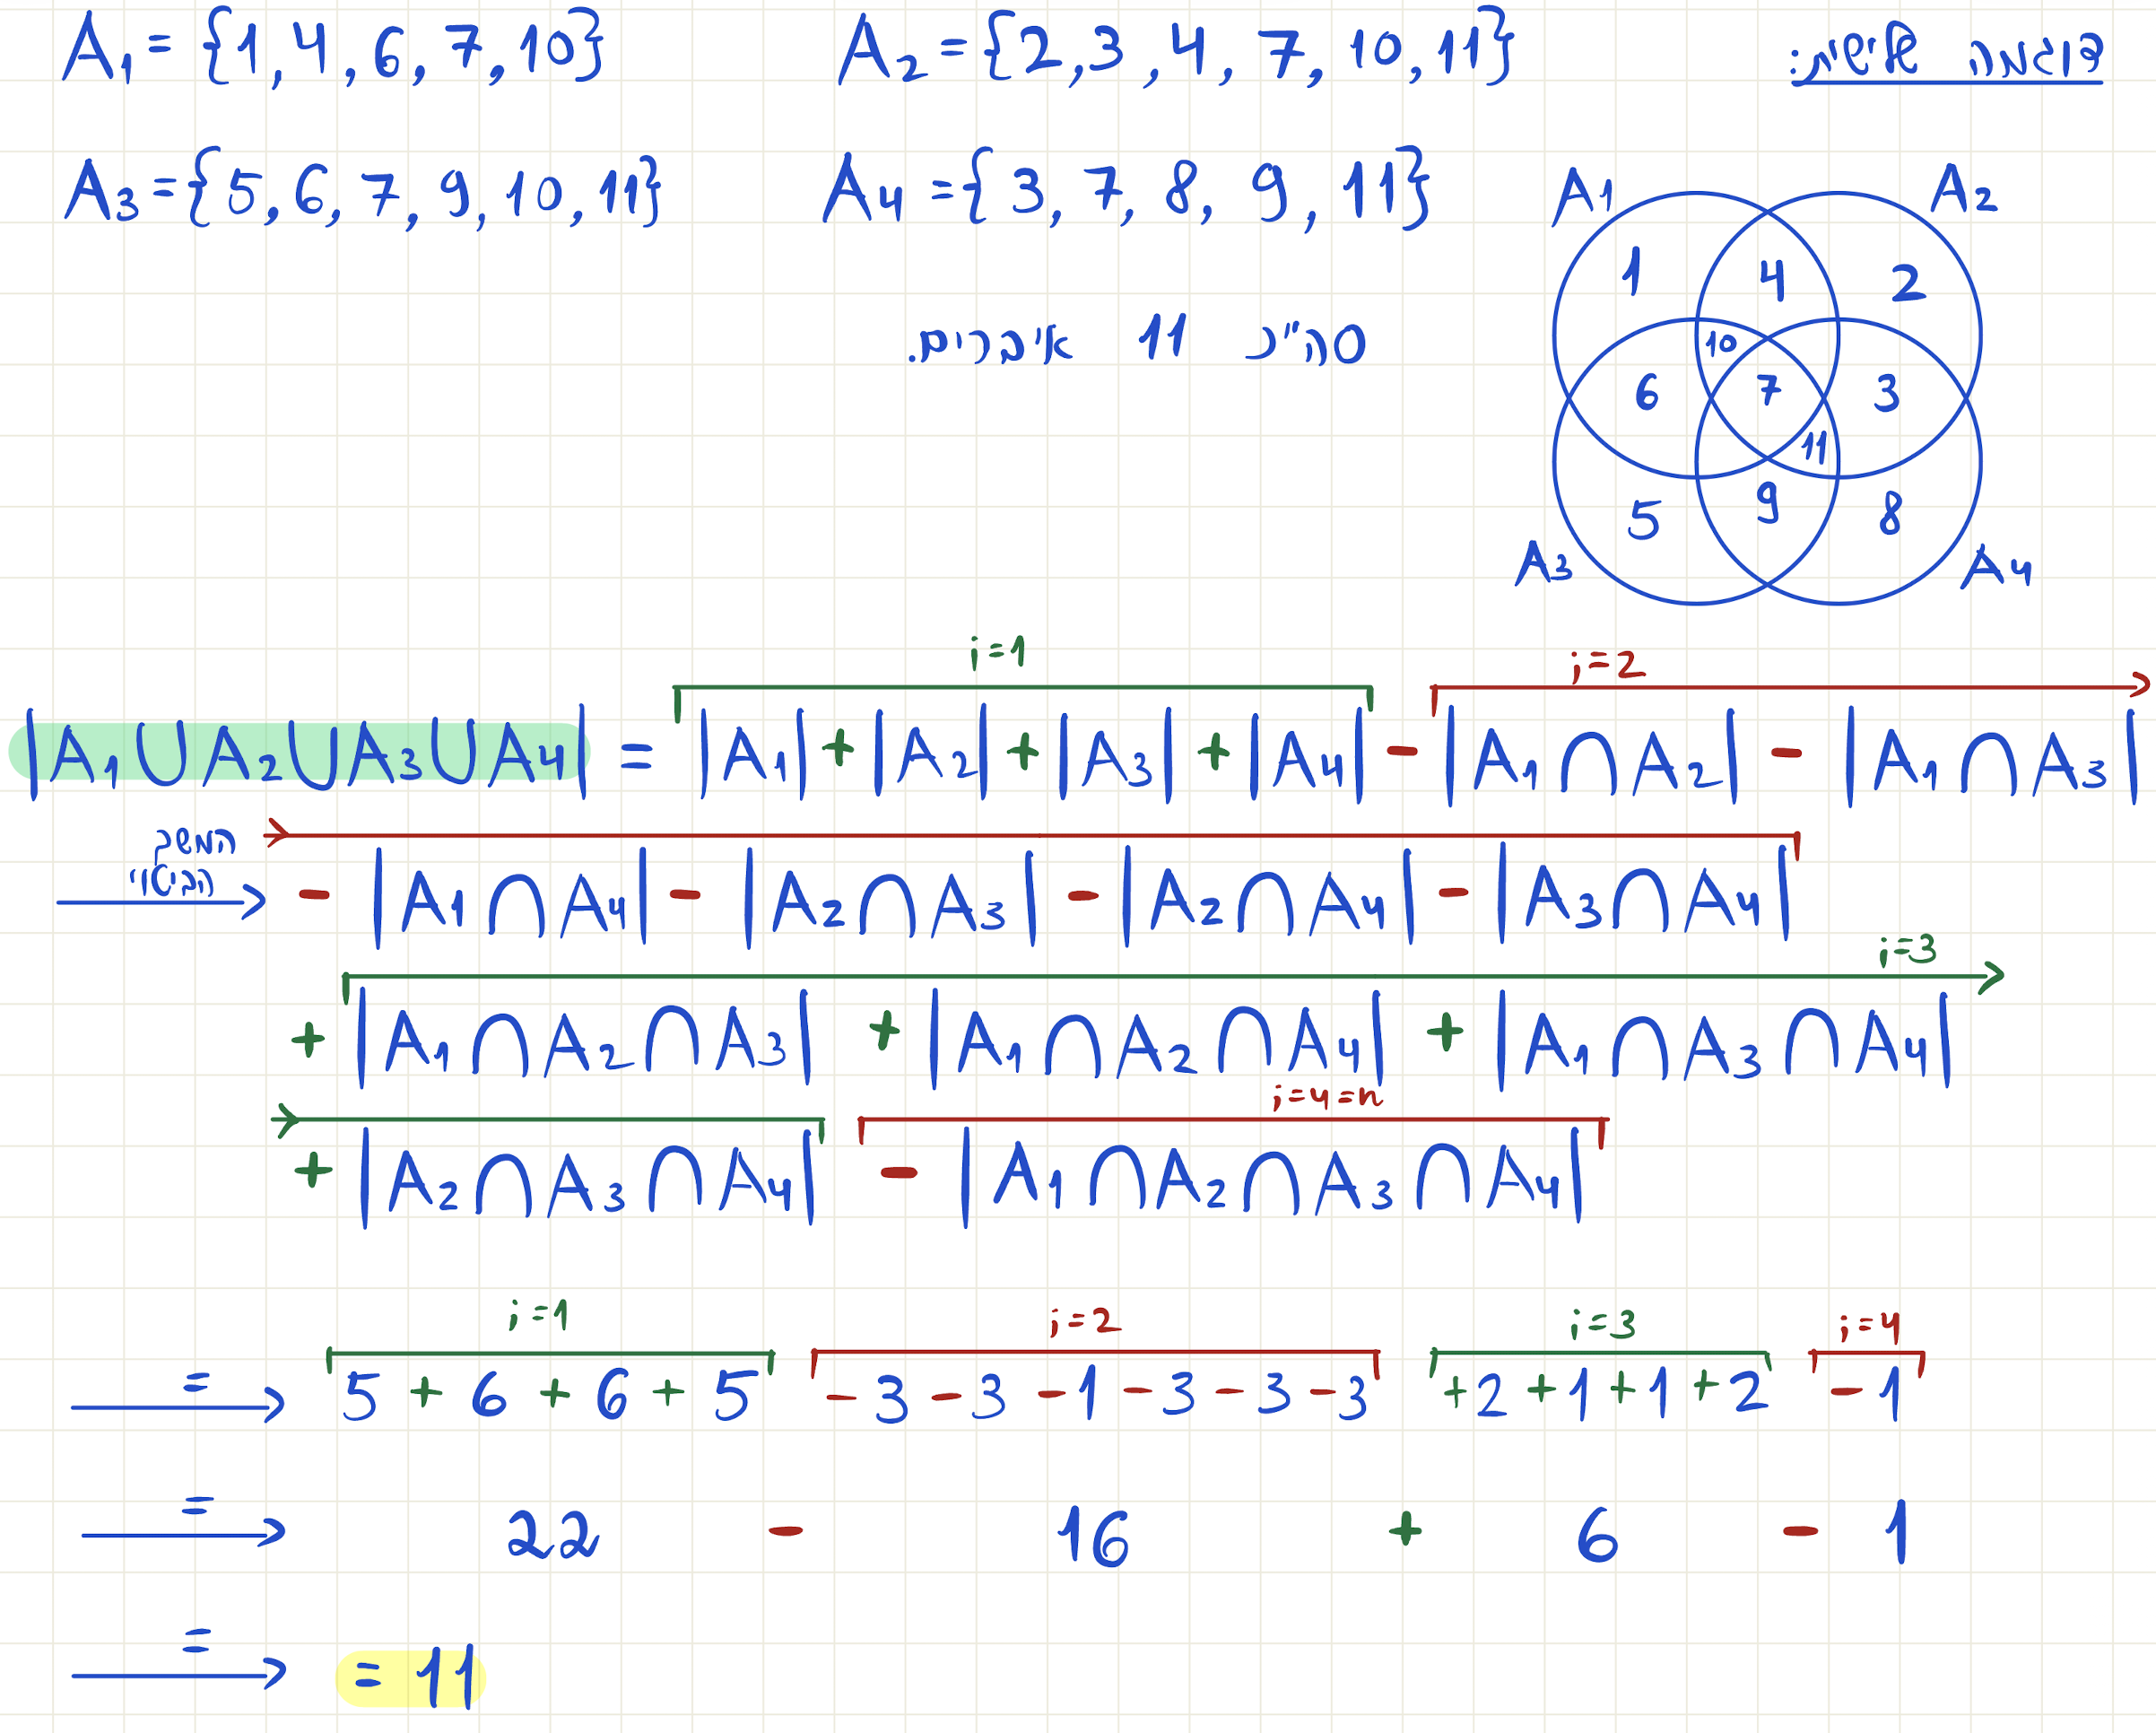 דוגמה שלישית:
A₁ = {1, 4, 6, 7, 10} A₂ = {2, 3, 4, 7, 10, 11}
A₃ = {5, 6, 7, 9, 10, 11} A₄ = {3, 7, 8, 9, 11}
סה"כ 11 איברים.
A₁ A₂
1 4 2
10
6 7 3
11
5 9 8
A₃ A₄
i=1 i=2
|A₁∪A₂∪A₃∪A₄| = |A₁| + |A₂| + |A₃| + |A₄| - |A₁∩A₂| - |A₁∩A₃|
המשך
הביטוי
- |A₁∩A₄| - |A₂∩A₃| - |A₂∩A₄| - |A₃∩A₄|
i=3
+ |A₁∩A₂∩A₃| + |A₁∩A₂∩A₄| + |A₁∩A₃∩A₄|
i=4=n
+ |A₂∩A₃∩A₄| - |A₁∩A₂∩A₃∩A₄|
i=1 i=2 i=3 i=4
= 5 + 6 + 6 + 5 - 3 - 3 - 1 - 3 - 3 - 3 + 2 + 1 + 1 + 2 - 1
= 22 - 16 + 6 - 1
= = 11